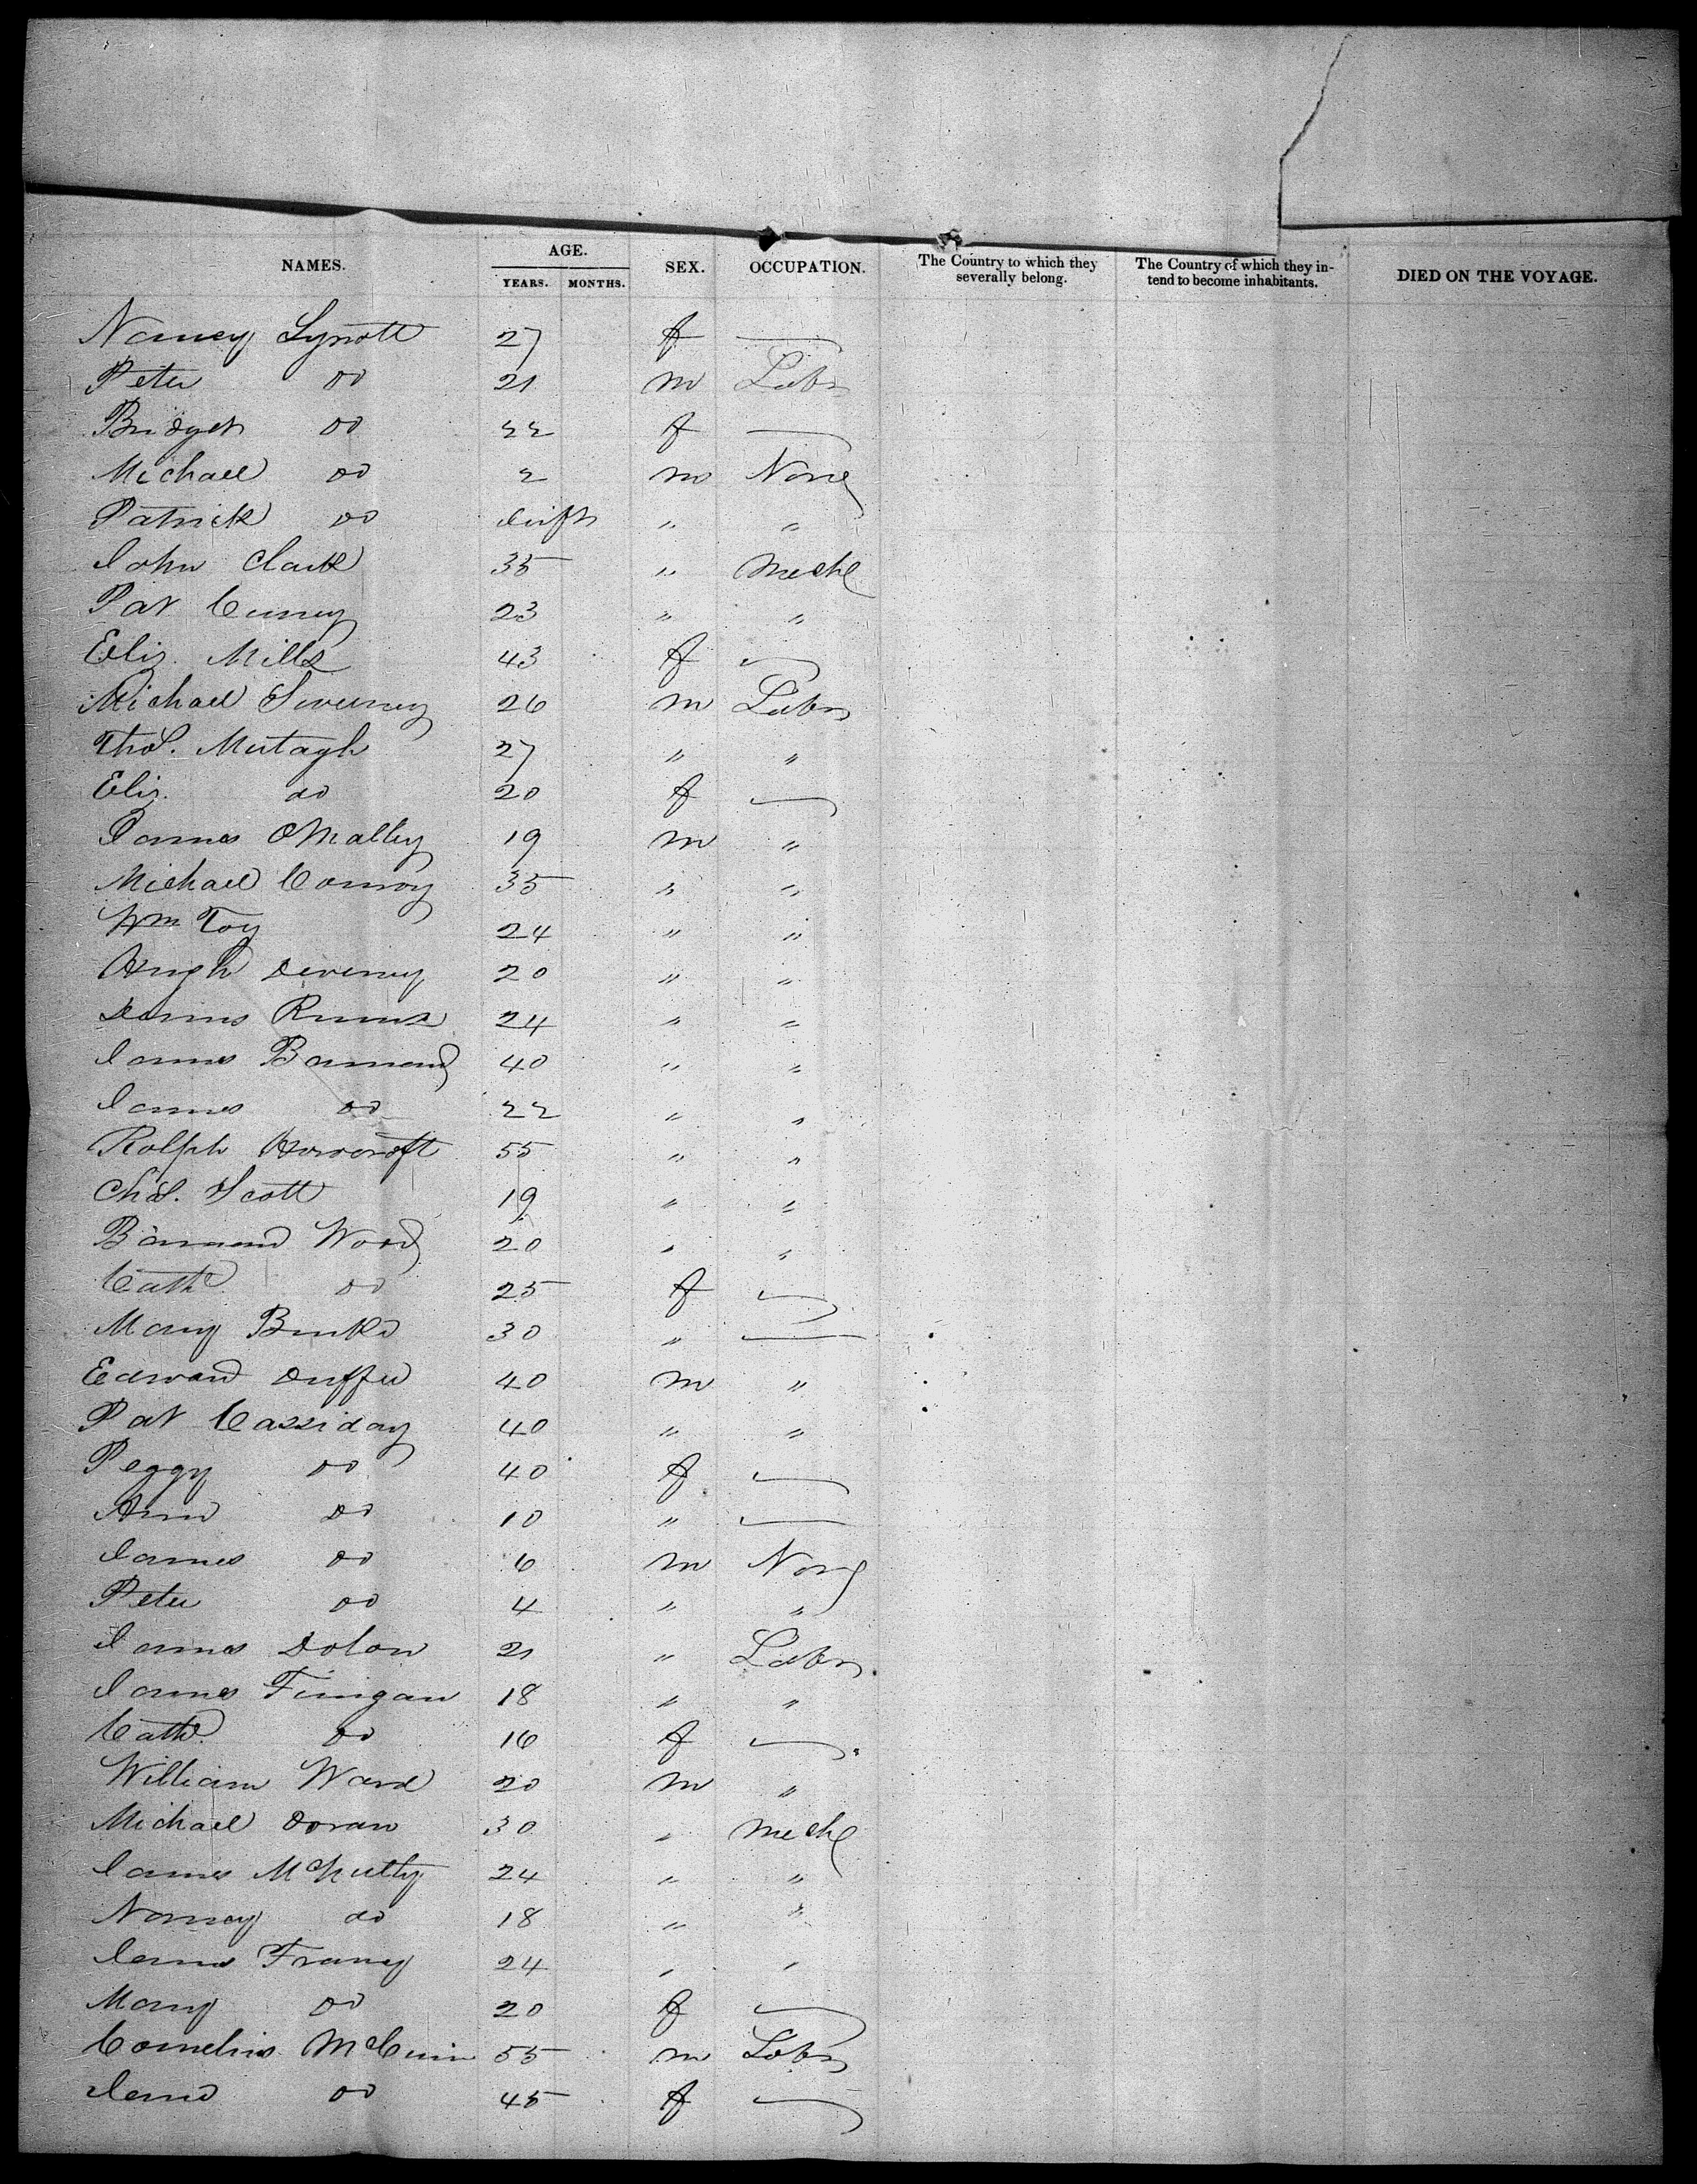 NAMES. AGE. SEX. OCCUPATION. The Country to which they severally belong. The Country of which they intend to become inhabitants. DIED ON THE VOYAGE.
YEARS. MONTHS.
Nancy Lynott 27 f —
Peter do 21 m Labr
Bridget do 22 f —
Michael do 2 m None
Patrick do Inft " "
John Clark 35 " Mechc
Pat 23 " "
Eliz. Mills 43 f —
Michael Sweeney 26 m Labr
Thos. Mutagh 27 " "
Eliz. do 20 f —
James OMalley 19 m "
Michael Conroy 35 " "
Wm Toy 24 " "
Hugh Deveney 20 " "
24 " "
James 40 " "
James do 22 " "
Rolph Howcroft 55 " "
Chs. Scott 19 " "
Wood 20 " "
Cathe do 25 f —
Mary Burke 30 " —
Edward 40 m "
Pat Cassiday 40 " "
Peggy do 40 f —
Ann do 10 " —
James do 6 m None
Peter do 4 " "
James Dolan 21 " Labr
James Finigan 18 " "
Cathe. do 16 f —
William Ward 20 m "
Michael Doran 30 " Mechc
James McNulty 24 " "
Nancy do 18 " "
James Franey 24 " "
Mary do 20 f —
Cornelius 55 m Labr
Jane do 45 f —